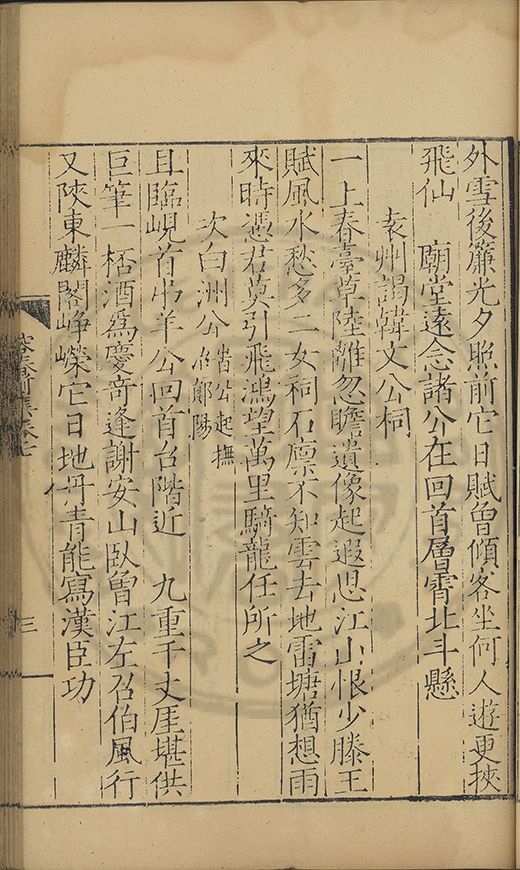 外雪後簾光夕照前它日賦曾傾客坐何人遊更挾
飛仙　廟堂遠念諸公在回首層霄北斗懸
袁州謁韓文公祠
一上春臺草陸離忽瞻遺像起遐思江山恨少滕王
賦風水愁多二女祠石廪不知雲去地雷塘猶想雨
來時憑君莫引飛鴻望萬里騎龍任所之
次白洲公
昔公起撫
治鄖陽
且臨峴首弔羊公回首台階近　九重千丈厓堪供
巨筆一桮酒爲慶奇逢謝安山臥曾江左召伯風行
又陝東麟閣崢嶸它日地丹青能寫漢臣功
三